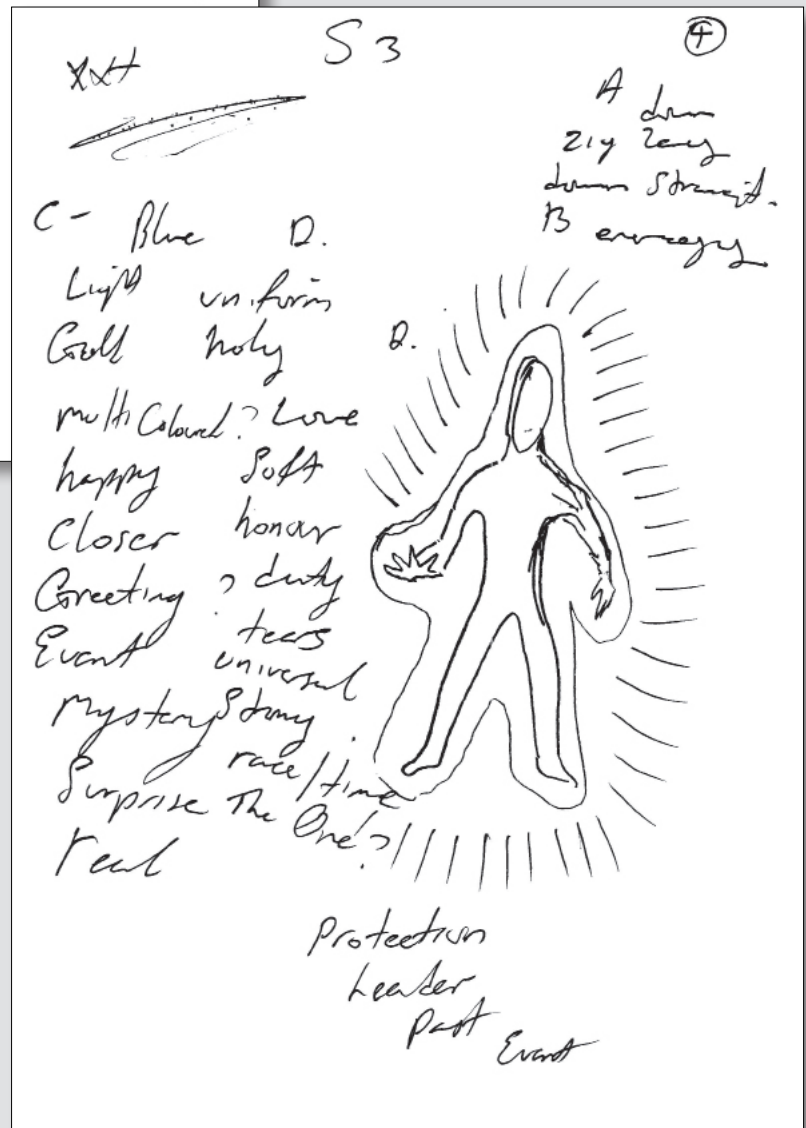 S 3
4
A down
zig zag
down straight.
B energy
C - Blue D.
Light uniform
Gold holy
D.
multi Coloured? Love
happy soft
Closer honour
Greeting ? duty
Event tears
universal
Mystery Story
race/time
Surprise The One?
real
Protection
Leader
Past
Event